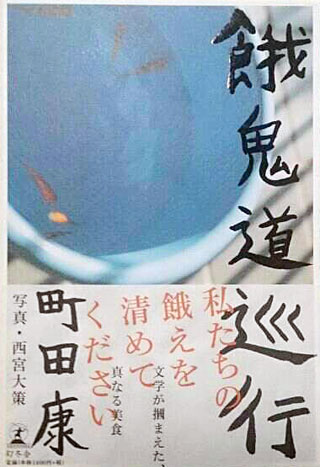 餓鬼道巡行
町田康
写真・西宮大策
私たちの
餓えを
清めて
ください
文学が摑まえた、
真なる美食
幻冬舎